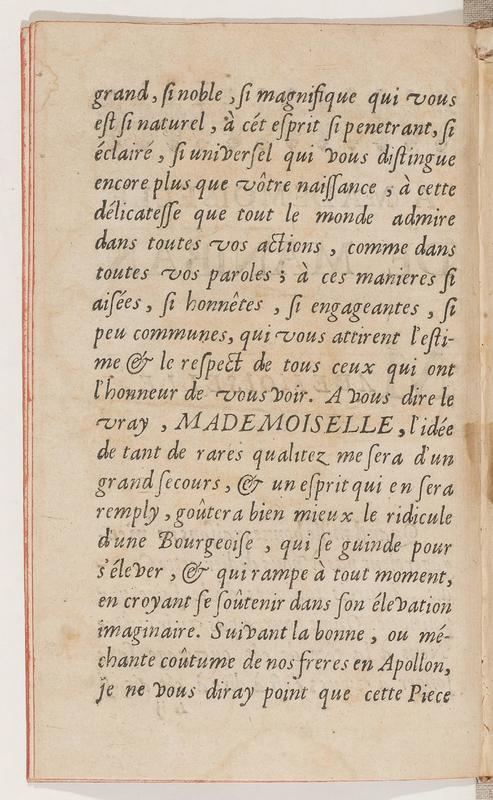 grand, si noble, si magnifique qui vous
est si naturel, à cét esprit si penetrant, si
éclairé, si universel qui vous distingue
encore plus que vôtre naissance ; à cette
délicatesse que tout le monde admire
dans toutes vos actions, comme dans
toutes vos paroles ; à ces manieres si
aisées, si honnêtes, si engageantes, si
peu communes, qui vous attirent l'esti-
me & le respect de tous ceux qui ont
l'honneur de vous voir. A vous dire le
vray, MADEMOISELLE, l'idée
de tant de rares qualitez me sera d'un
grand secours, & un esprit qui en sera
remply, goûtera bien mieux le ridicule
d'une Bourgeoise, qui se guinde pour
s'élever, & qui rampe à tout moment,
en croyant se soûtenir dans son élevation
imaginaire. Suivant la bonne, ou mé-
chante coûtume de nos freres en Apollon,
je ne vous diray point que cette Piece